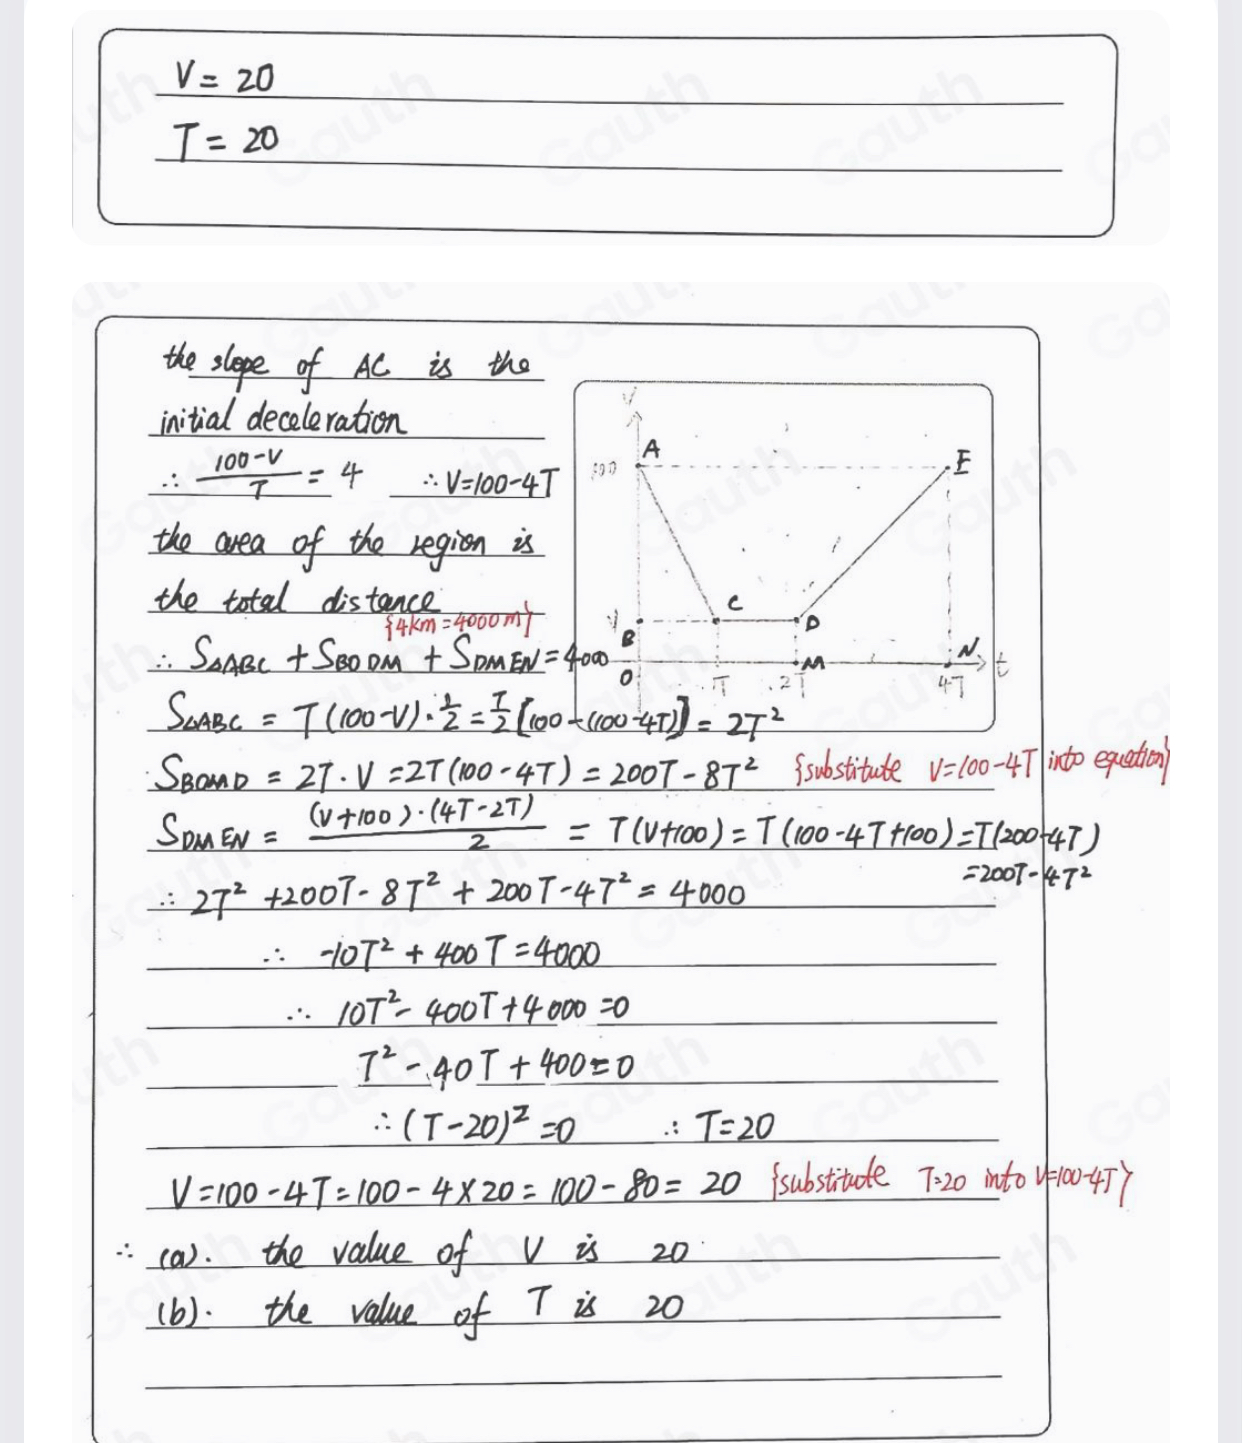 V = 20
T = 20
the slope of AC is the
initial deceleration
∴ (100-V)/T = 4 ∴ V=100-4T
the area of the region is
the total distance
{4km=4000m}
∴ S△ABC + SBODM + SDMEN = 4000
S△ABC = T(100-V)·1/2 = T/2 [100-(100-4T)] = 2T²
SBOMD = 2T·V = 2T(100-4T) = 200T-8T² {substitute V=100-4T into equation}
SDMEN = (V+100)·(4T-2T)/2 = T(V+100) = T(100-4T+100) = T(200-4T)
=200T-4T²
∴ 2T² +200T-8T² + 200T-4T² = 4000
∴ -10T² + 400T = 4000
∴ 10T²-400T+4000=0
T²-40T+400=0
∴ (T-20)²=0 ∴ T=20
V=100-4T=100-4×20=100-80=20 {substitute T=20 into V=100-4T}
∴ (a). the value of V is 20
(b). the value of T is 20
V
100
A
E
C
V
B
D
O
T
2T
M
4T
N
t
Gauth